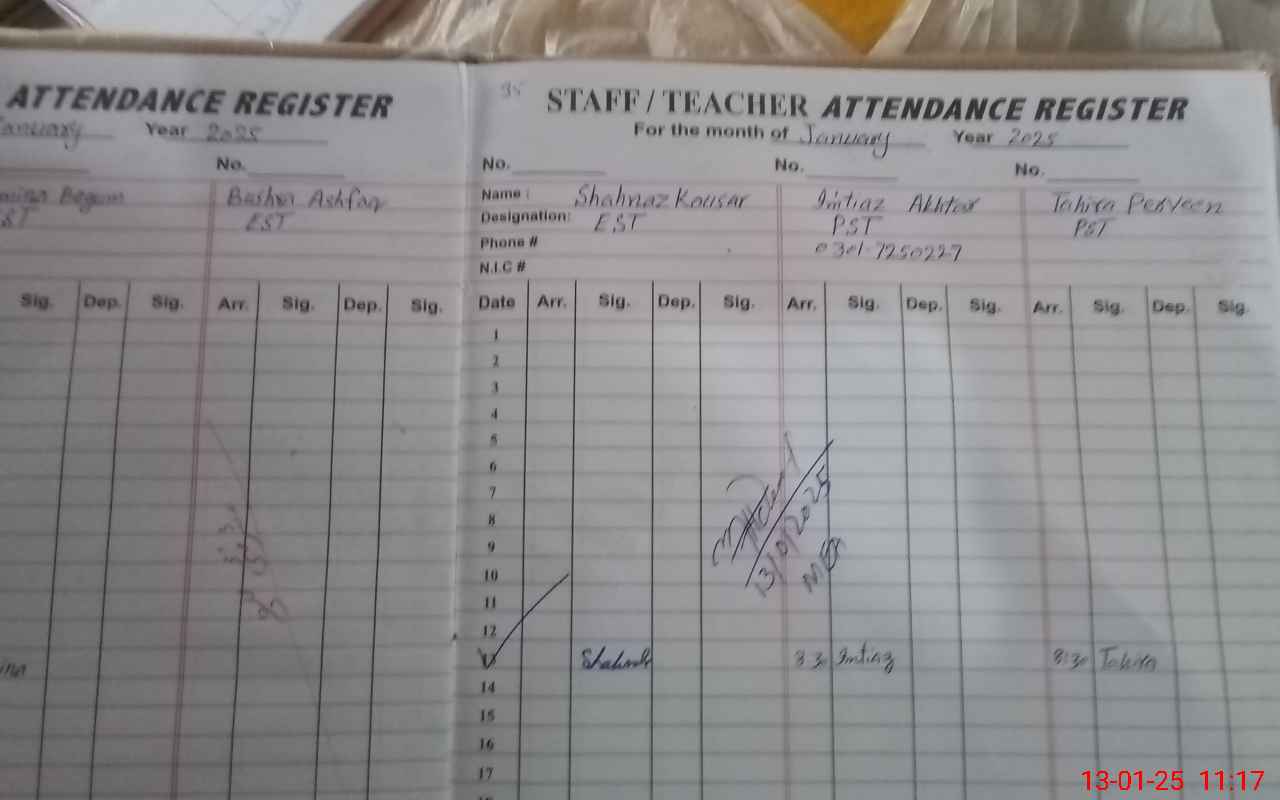 ATTENDANCE REGISTER
January Year 2025
No.
Begum Bushra Ashfaq
EST
Sig. Dep. Sig. Arr. Sig. Dep. Sig.
STAFF / TEACHER ATTENDANCE REGISTER
For the month of January Year 2025
No. No. No.
Name : Shahnaz Kousar Imtiaz Akhtar Tahira Perveen
Designation: EST PST PST
Phone # 0301-7250227
N.I.C #
Date Arr. Sig. Dep. Sig. Arr. Sig. Dep. Sig. Arr. Sig. Dep. Sig.
1
2
3
4
5
6
7
8
9
10
11
12
13 Shahnaz 8:30 Imtiaz 8:30 Tahira
14
15
16
17
13/01/2025
MEA
13-01-25 11:17